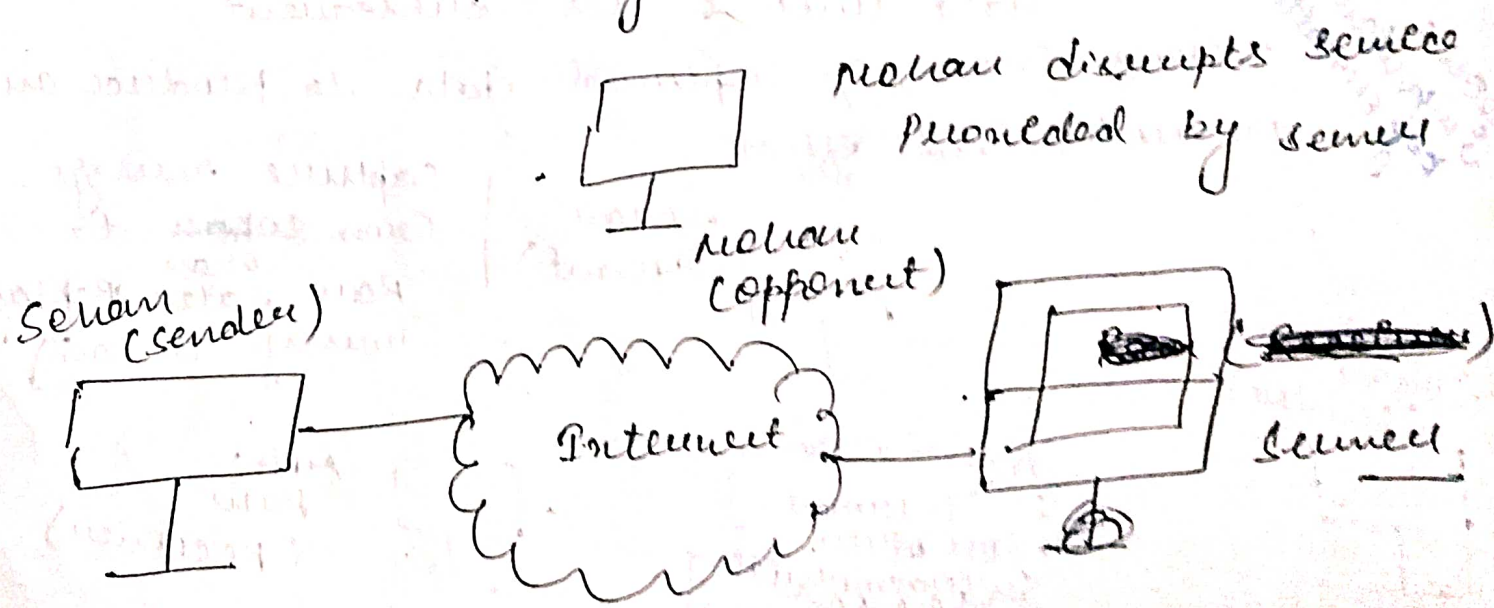 Mohan disrupts service
Provided by server
Mohan
(opponent)
Sohan
(sender)
Internet
Server